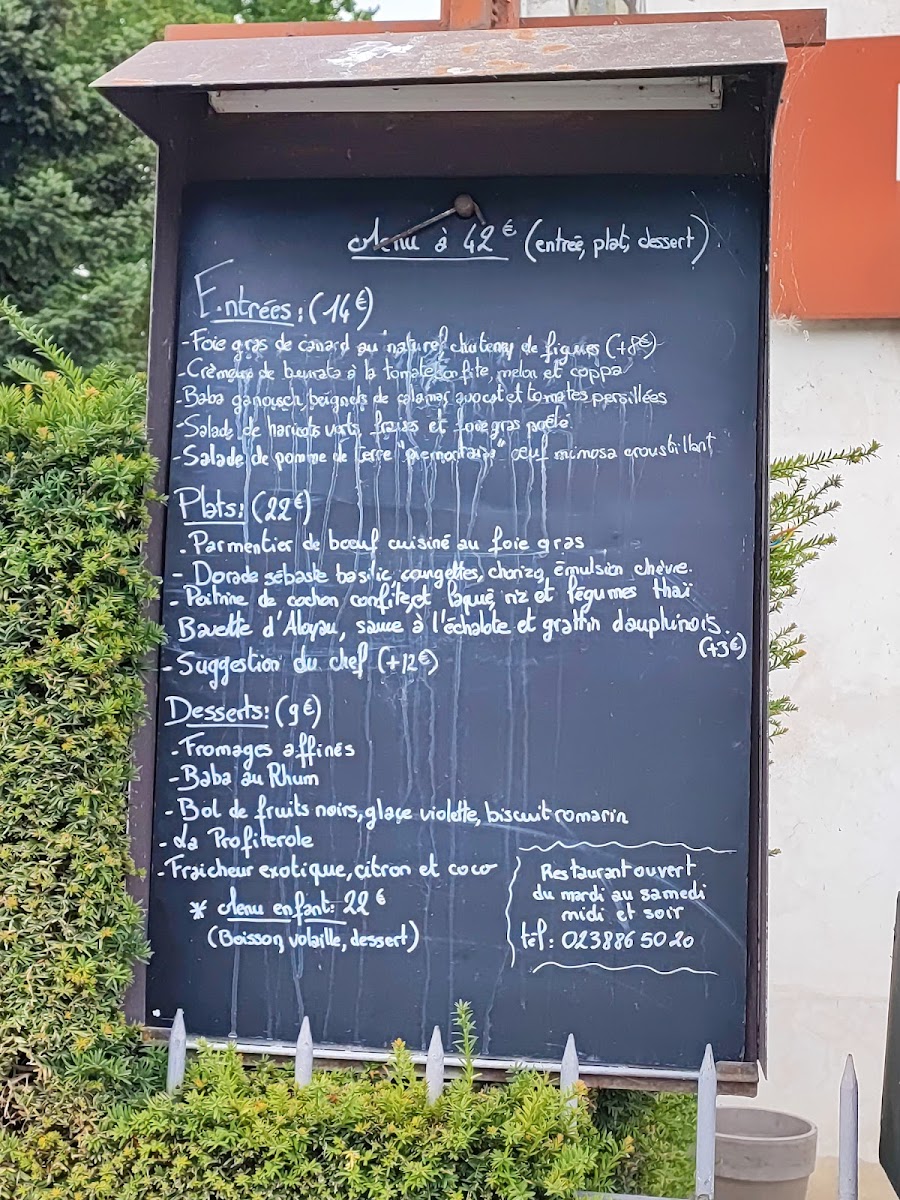 Menu à 42€ (entrée, plat, dessert)
Entrées: (14€)
-Foie gras de canard au naturel chutney de figues (+8€)
-Crémeux de burrata à la tomate confite, melon et coppa
-Baba ganousch, beignets de calamar, avocat et tomates persillées
-Salade de haricots verts, fraises et foie gras poêlé
-Salade de pomme de terre "piémontaise" œuf mimosa croustillant
Plats: (22€)
-Parmentier de bœuf cuisiné au foie gras
- Dorade sébaste basilic, courgettes, chorizo, Émulsion chèvre.
-Poitrine de cochon confite et laqué, riz et légumes thaï
Bavette d'Aloyau, sauce à l'échalote et grattin dauphinois.
(+3€)
-Suggestion du chef (+12€)
Desserts: (9€)
-Fromages affinés
-Baba au Rhum
-Bol de fruits noirs, glace violette, biscuit romarin
-La Profiterole
-Fraicheur exotique, citron et coco
* Menu enfant: 22€
(Boisson, volaille, dessert)
Restaurant ouvert
du mardi au samedi
midi et soir
tél: 0238865020